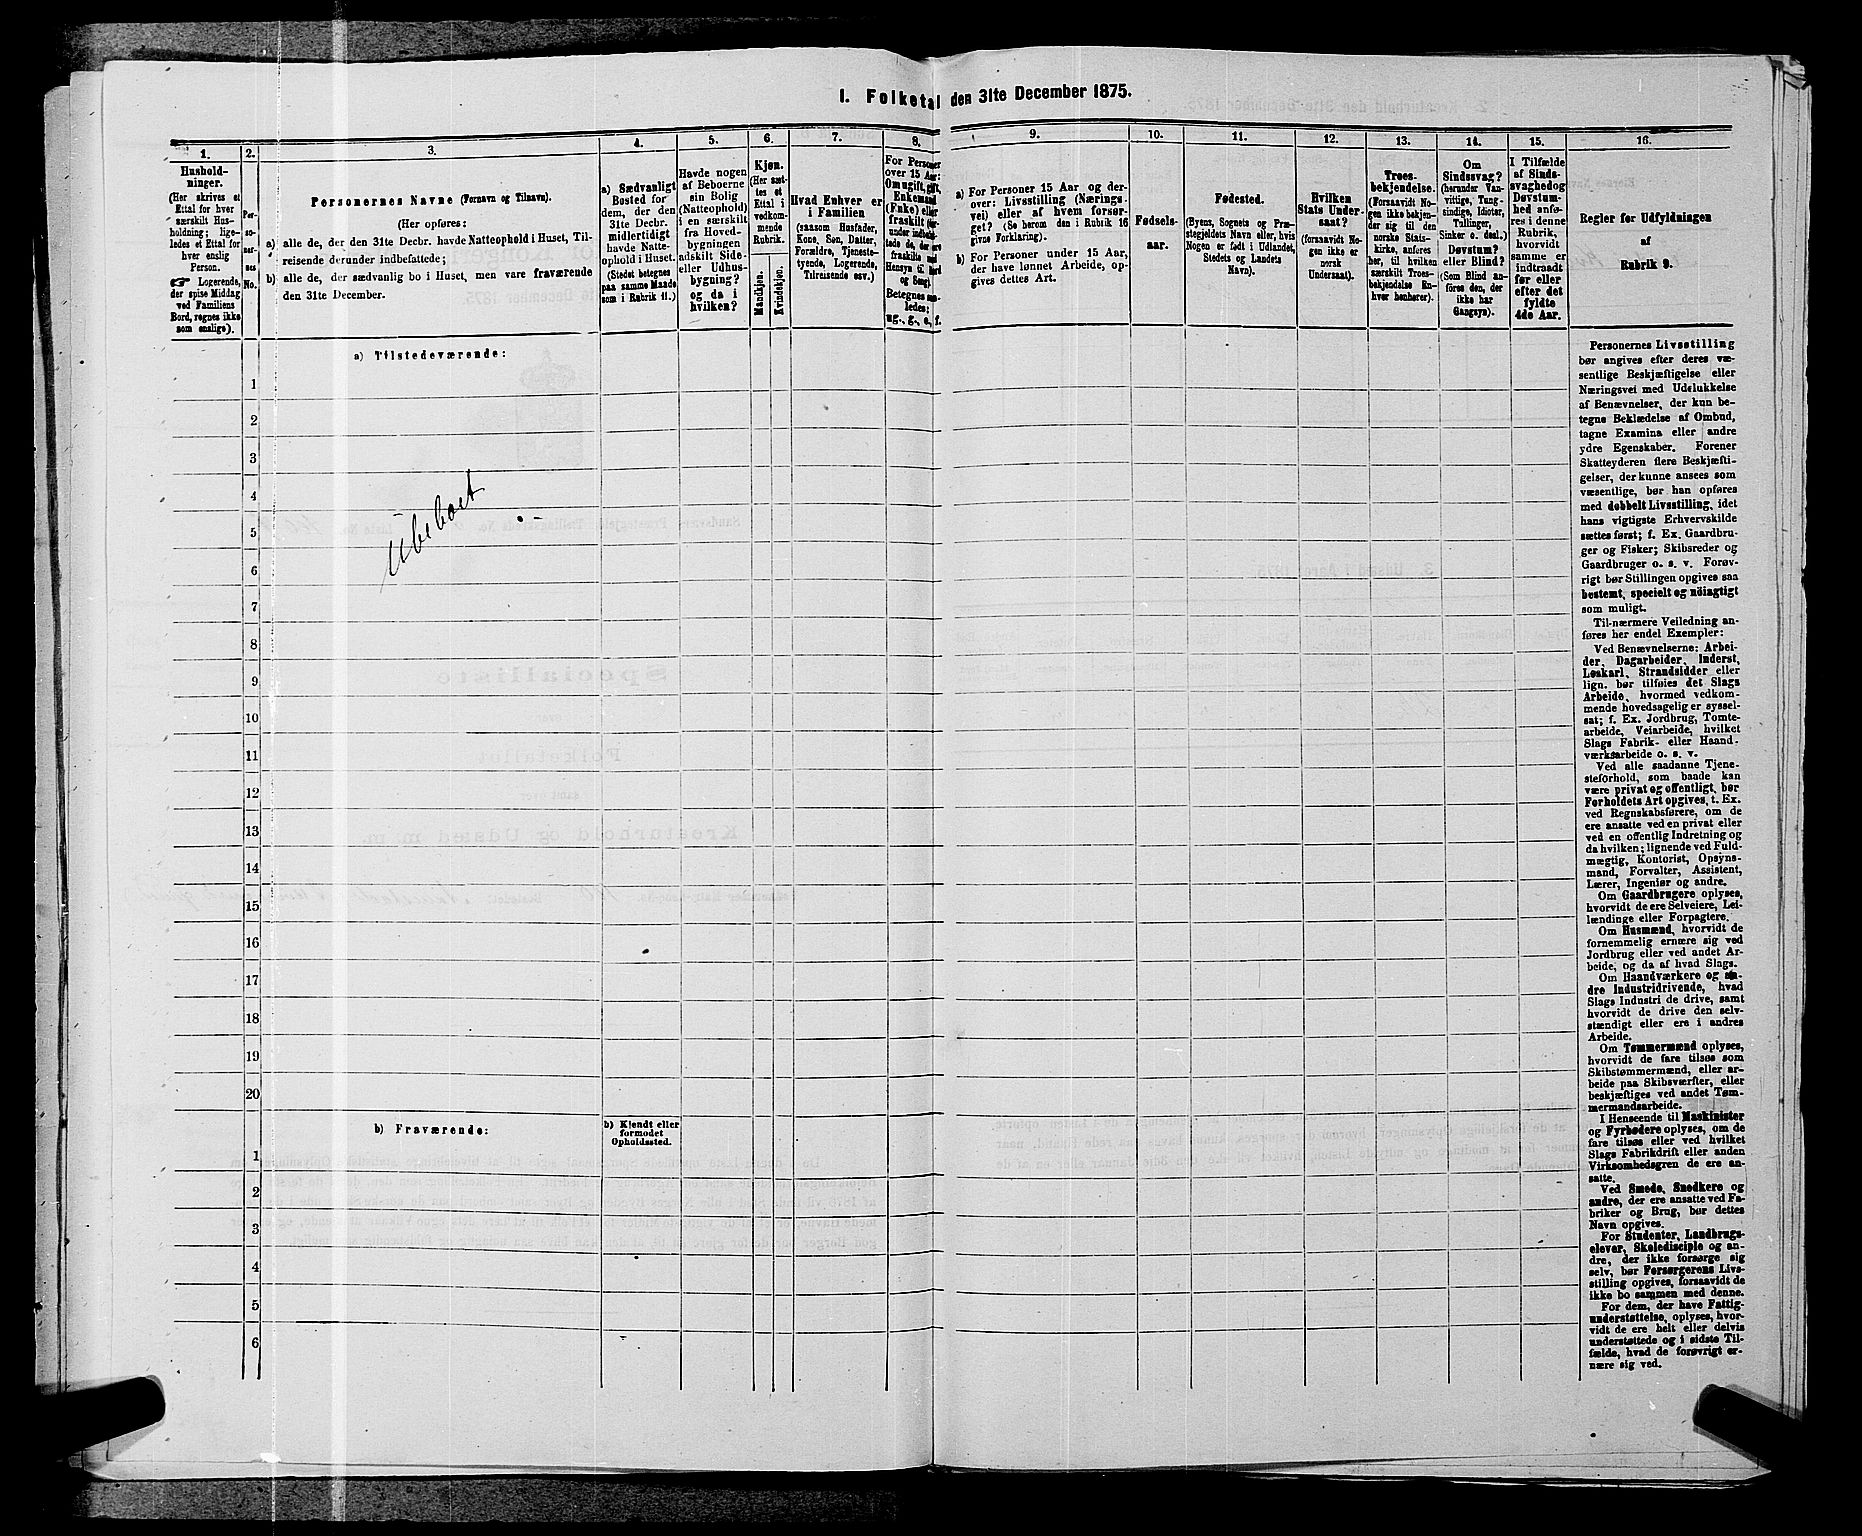 1. Folketal den 31te December 1875.
1.
2.
3.
4.
5.
6.
7.
8.
9.
10.
11.
12.
13.
14.
15.
16.
Hushold-
ninger.
(Her skrives et
Ettal for hver
særskilt Hus-
holdning; lige-
ledes et Ettal for
hver enslig
Person.
☞ Logerende,
der spise Middag
ved Familiens
Bord, regnes ikke
som enslige).
Per-
so-
ner-
nes
No.
Personernes Navne (Fornavn og Tilnavn).
(Her opføres:
a) alle de, der den 31te Decbr. havde Natteophold i Huset, Til-
reisende derunder indbefattede;
b) alle de, der sædvanlig bo i Huset, men vare fraværende
den 31te December.
a) Sædvanligt
Bosted for
dem, der den
31te Decbr.
midlertidigt
havde Natte-
ophold i Huset.
(Stedet betegnes
paa samme Maade
som i Rubrik 11.)
Havde nogen
af Beboerne
sin Bolig
(Natteophold)
i en særskilt
fra Hoved-
bygningen
adskilt Side-
eller Udhus-
bygning?
og da i
hvilken?
Kjøn.
(Her sæt-
tes et
Ettal i
vedkom-
mende
Rubrik.
Mandkjøn.
Kvindekjøn.
Hvad Enhver er
i Familien
(saasom Husfader,
Kone, Søn, Datter,
Forældre, Tjeneste-
tyende, Logerende,
Tilreisende osv.)
For Personer
over 15 Aar:
Om ugift, gift,
Enkemand
(Enke) eller
fraskilt (her-
under indbefat-
tede de, der ere
fraskilte med
Hensyn til Bord
og Seng).
Betegnes saa-
ledes:
ug., g., e., f.
a) For Personer 15 Aar og der-
over: Livsstilling (Nærings-
vei) eller af hvem forsør-
get? (Se herom den i Rubrik 16
givne Forklaring).
b) For Personer under 15 Aar,
der have lønnet Arbeide, op-
gives dettes Art.
Fødsels-
aar.
Fødested.
(Byens, Sognets og Præ-
stegjeldets Navn eller, hvis
Nogen er født i Udlandet,
Stedets og Landets
Navn).
Hvilken
Stats Under-
saat?
(forsaavidt No-
gen ikke er
norsk
Undersaat).
Troes-
bekjendelse.
(Forsaavidt No-
gen ikke bekjen-
der sig til den
norske Stats-
kirke, anføres
her, til hvilken
særskilt Troes-
bekjendelse En-
hver henhører).
Om
Sindssvag?
(herunder Van-
vittige, Tung-
sindige, Idioter,
Tullinger,
Sinker o. desl.)
Døvstum?
eller Blind?
(Som Blind an-
føres den, der
ikke har
Gangsyn).
I Tilfælde
af Sinds-
svaghed og
Døvstum-
hed anfø-
res i denne
Rubrik,
hvorvidt
samme er
indtraadt
før eller
efter det
fyldte
4de Aar.
Regler for Udfyldningen
af
Rubrik 9.
a) Tilstedeværende:
1
2
3
4
5
6
7
8
9
10
11
12
13
14
15
16
17
18
19
20
Ubeboet
b) Fraværende:
b) Kjendt eller
formodet
Opholdssted.
1
2
3
4
5
6
Personernes Livsstilling
bør angives efter deres væ-
sentlige Beskjæftigelse eller
Næringsvei med Udelukkelse
af Benævnelser, der kun be-
tegne Beklædelse af Ombud,
tagne Examina eller andre
ydre Egenskaber. Forener
Skatteyderen flere Beskjæfti-
gelser, der kunne ansees som
væsentlige, bør han opføres
med dobbelt Livsstilling, idet
hans vigtigste Erhvervskilde
sættes først; f. Ex. Gaardbru-
ger og Fisker; Skibsreder og
Gaardbruger o. s. v. Forøv-
rigt bør Stillingen opgives saa
bestemt, specielt og nöiagtigt
som muligt.
Til nærmere Veiledning an-
føres her endel Exempler:
Ved Benævnelserne: Arbei-
der, Dagarbeider, Inderst,
Løskarl, Strandsidder eller
lign. bør tilføies det Slags
Arbeide, hvormed vedkom-
mende hovedsagelig er syssel-
sat; f. Ex. Jordbrug, Tomte-
arbeide, Veiarbeide, hvilket
Slags Fabrik- eller Haand-
værksarbeide o. s. v.
Ved alle saadanne Tjene-
steforhold, som baade kan
være privat og offentligt, bør
Forholdets Art opgives, t. Ex.
ved Regnskabsførere, om de
ere ansatte ved en privat eller
ved en offentlig Indretning og
da hvilken; lignende ved Fuld-
mægtig, Kontorist, Opsyns-
mand, Forvalter, Assistent,
Lærer, Ingeniør og andre.
Om Gaardbrugere oplyses,
hvorvidt de ere Selveiere, Lei-
lændinge eller Forpagtere.
Om Husmænd, hvorvidt de
fornemmelig ernære sig ved
Jordbrug eller ved andet Ar-
beide, og da af hvad Slags.
Om Haandværkere og an-
dre Industridrivende, hvad
Slags Industri de drive, samt
hvorvidt de drive den selv-
stændigt eller ere i andres
Arbeide.
Om Tømmermænd oplyses,
hvorvidt de fare tilsøs som
Skibstømmermænd, eller ar-
beide paa Skibsværfter, eller
beskjæftiges ved andet Tøm-
mermandsarbeide.
I Henseende til Maskinister
og Fyrbødere oplyses, om de
fare tilsøs eller ved hvilket
Slags Fabrikdrift eller anden
Virksomhedsgren de ere an-
satte.
Ved Smede, Snedkere og
andre, der ere ansatte ved Fa-
briker og Brug, bør dettes
Navn opgives.
For Studenter, Landbrugs-
elever, Skoledisciple og an-
dre, der ikke forsørge sig
selv, bør Forsørgerens Livs-
stilling opgives, forsaavidt de
ikke bo sammen med denne.
For dem, der have Fattig-
understøttelse, oplyses, hvor-
vidt de ere helt eller delvis
understøttede og i sidste Til-
fælde, hvad de forøvrigt er-
nære sig ved.